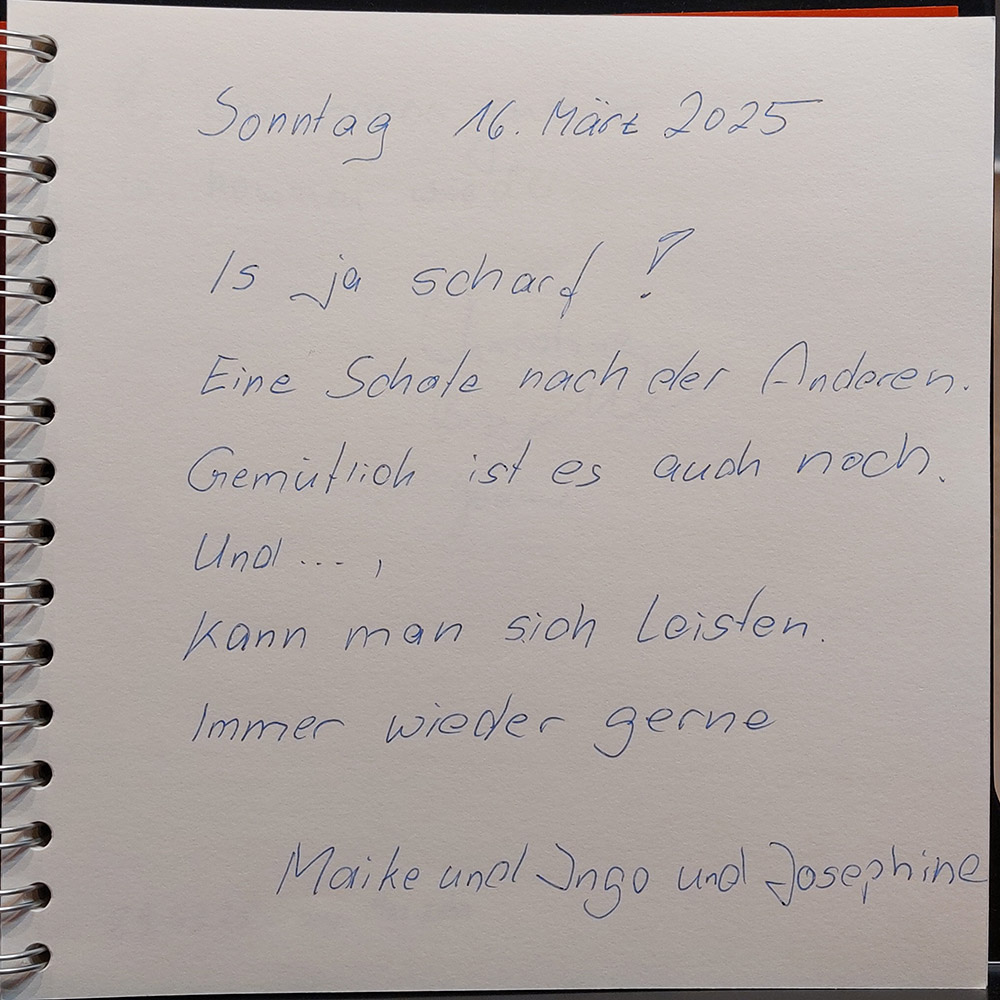 Sonntag 16. März 2025
Is ja scharf!
Eine Schale nach der Anderen.
Gemütlich ist es auch noch.
Und ...,
kann man sich Leisten.
Immer wieder gerne
Maike und Ingo und Josephine